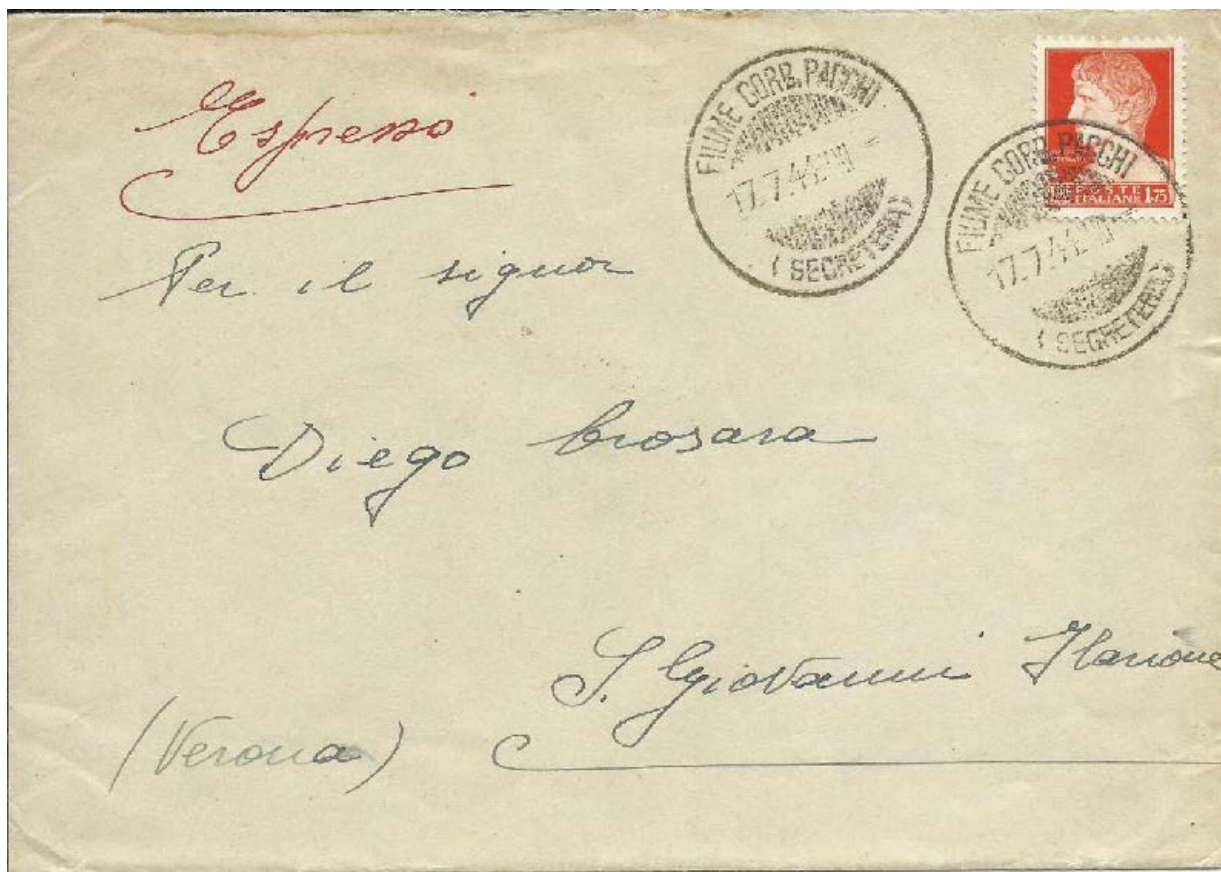 Espresso
FIUME CORR. PACCHI
17.7.42
( SEGRETERIA )
FIUME CORR. PACCHI
17.7.42
( SEGRETERIA )
POSTE
ITALIANE 1.75
Per il signor
Diego Brosara
S. Giovanni Ilarione
(Verona)